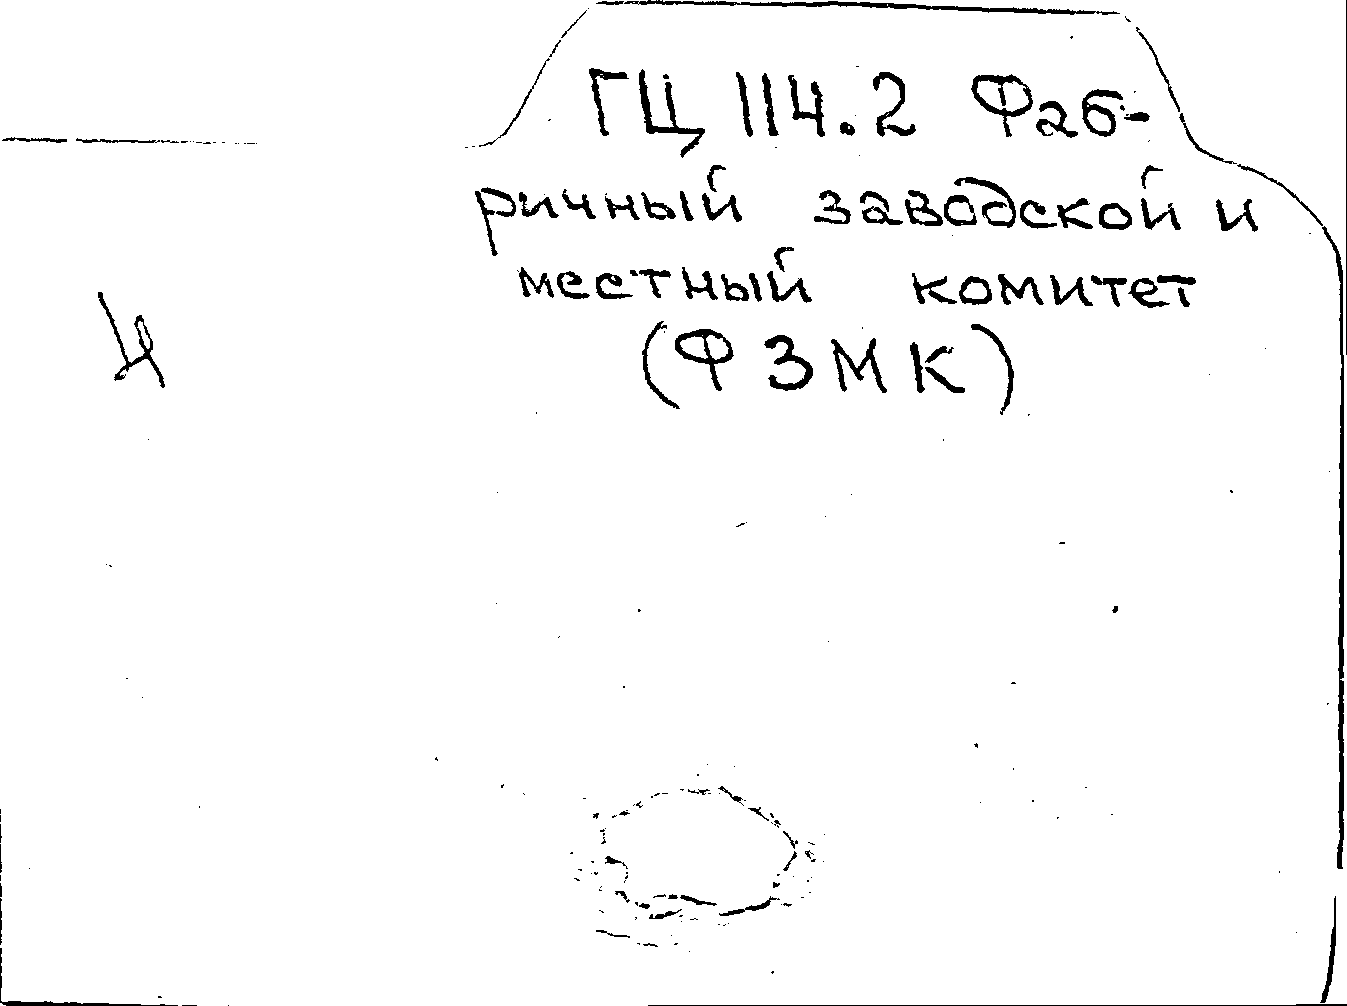 ГЦ 114.2 Фаб-
ричный заводской и
местный комитет
(ФЗМК)